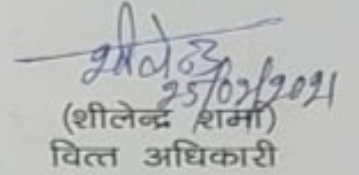 शीलेन्द्र
25/02/2021
(शीलेन्द्र शर्मा)
वित्त अधिकारी